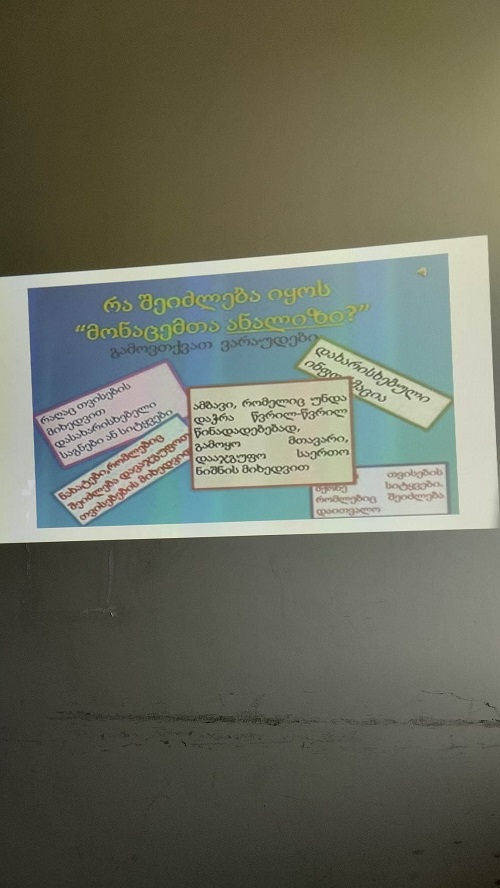 რა შეიძლება იყოს
“მონაცემთა ანალიზი?”
გამოვთქვათ ვარაუდები
რაღაც თვისების
მიხედვით
დასახარისხებელი
საგნები ან სიტყვები
დახარისხებული
ინფორმაცია
ამბავი, რომელიც უნდა
დაჭრა წვრილ-წვრილ
წინადადებებად,
გამოყო მთავარი,
დააჯგუფო საერთო
ნიშნის მიხედვით
ნახატები,რომლებიც
შეიძლება დავაჯგუფოთ
თვისებების მიხედვით
თვისების
მქონე სიტყვები.
რომლებიც შეიძლება
დაითვალო